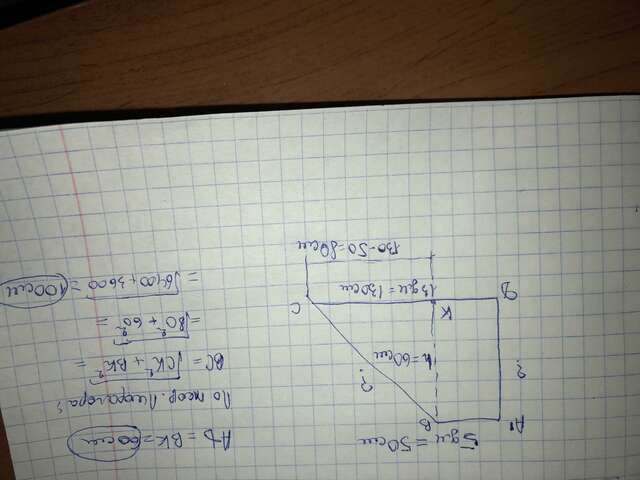 5 дм = 50 см
A
B
?
?
h = 60 см
Д
K
C
13 дм = 130 см
130 - 50 = 80 см
AД = BK = 60 см
По теор. Пифагора:
BC = √CK² + BK² =
= √80² + 60² =
= √6400 + 3600 = 100 см